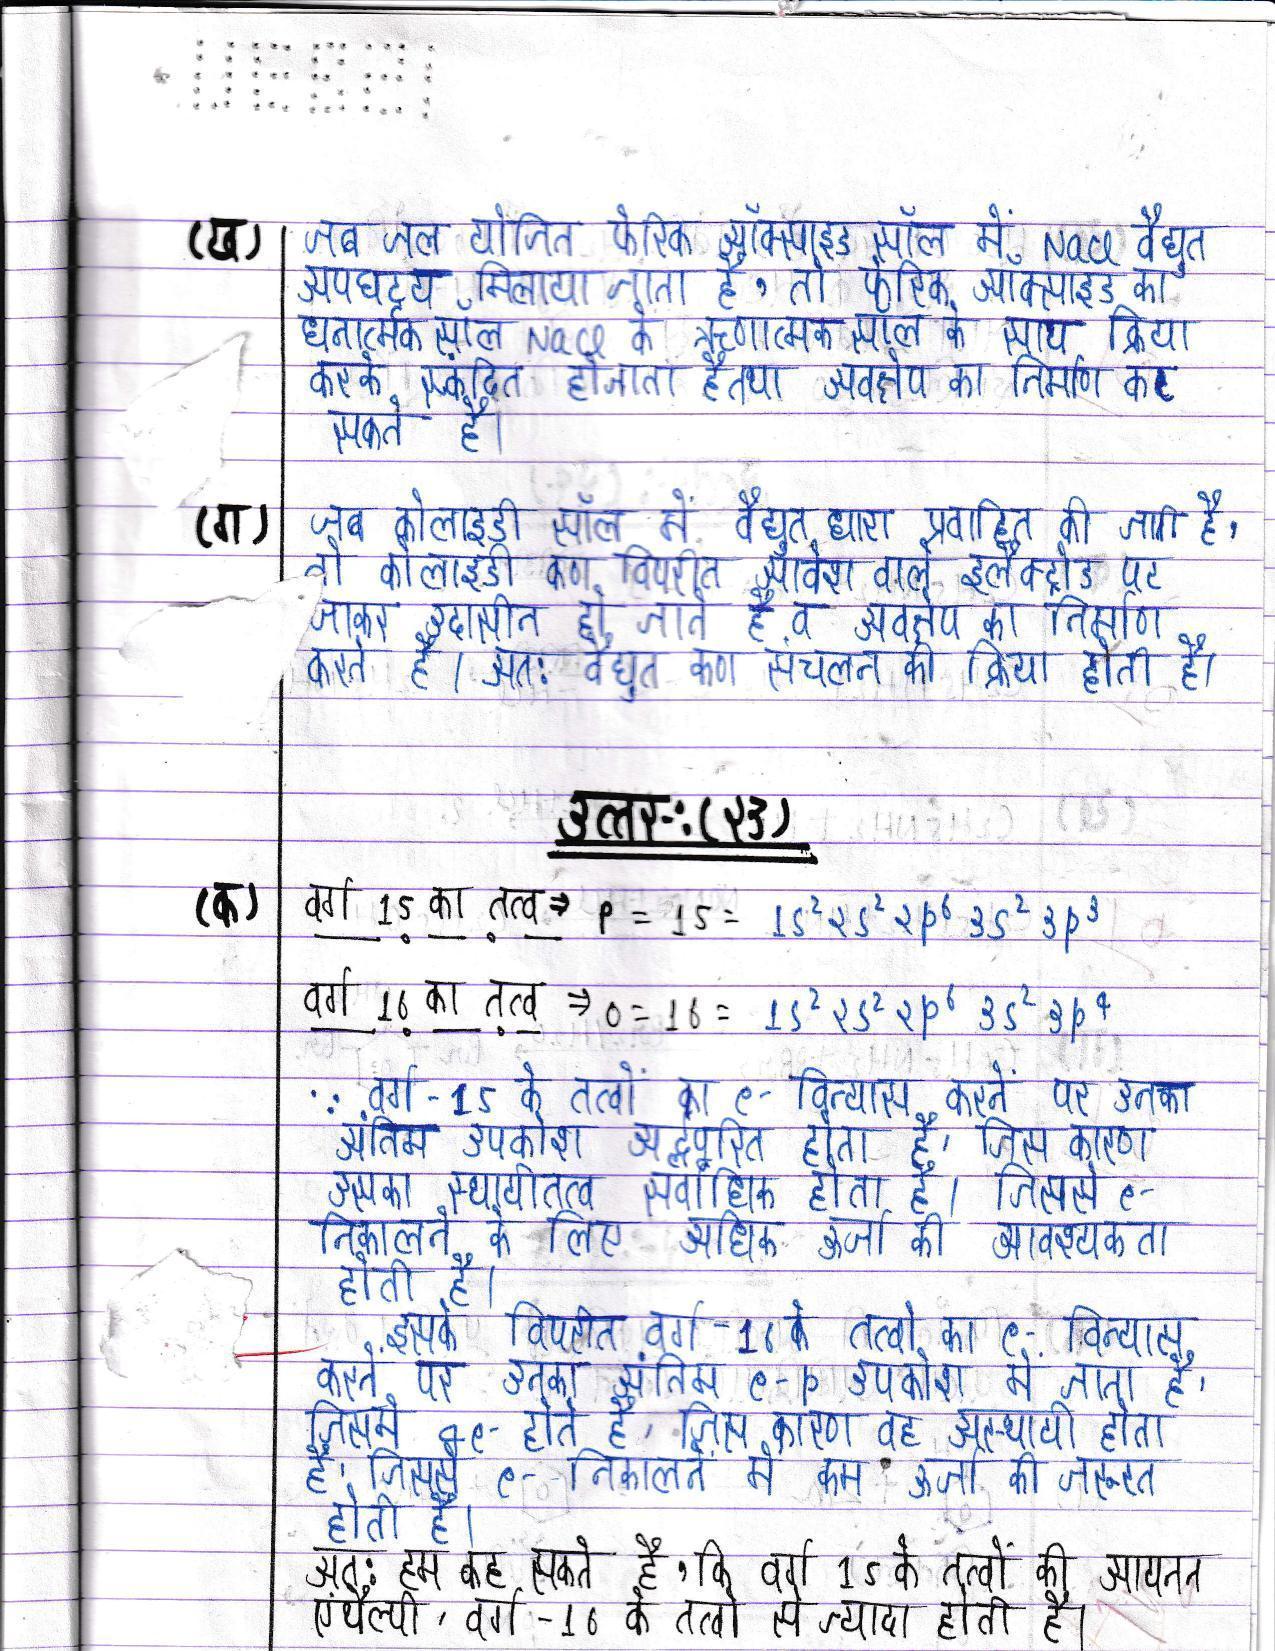 (ख) जब जल योजित फेरिक ऑक्साइड सॉल में, NaCl वैद्युत
अपघट्य मिलाया जाता है, तो फेरिक ऑक्साइड का
धनात्मक सॉल NaCl के ऋणात्मक सॉल के साथ क्रिया
करके स्कंदित होजाता है तथा अवक्षेप का निर्माण कर
सकते है।
(ग) जब कोलाइडी सॉल में वैद्युत धारा प्रवाहित की जाती है,
तो कोलाइडी कण विपरीत आवेश वाले इलैक्ट्रोड पर
जाकर उदासीन हो जाते है व अवक्षेप का निर्माण
करते है। अतः वैद्युत कण संचलन की क्रिया होती है।
उत्तर-:(२३)
(क) वर्ग 15 का तत्व ⇒ P = 15 = 1s² २s² २p⁶ 3s² 3p³
वर्ग 16 का तत्व ⇒ O = 16 = 1s² २s² २p⁶ 3s² 3p⁴
∵ वर्ग-15 के तत्वों का e- विन्यास करनें पर उनका
अंतिम उपकोश अर्द्धपूरित होता है, जिस कारण
उसका स्थायीतत्व सर्वाधिक होता है। जिससे e-
निकालने के लिए अधिक ऊर्जा की आवश्यकता
होती है।
इसके विपरीत वर्ग-16 के तत्वों का e- विन्यास
करने पर उनका अंतिम e- p उपकोश में जाता है,
जिसमें 4e- होते है, जिस कारण वह अस्थायी होता
है, जिससे e- निकालने में कम ऊर्जा की जरूरत
होती है।
अतः हम कह सकते है, कि वर्ग 15 के तत्वों की आयनन
एंथैल्पी, वर्ग-16 के तत्वों से ज्यादा होती है।